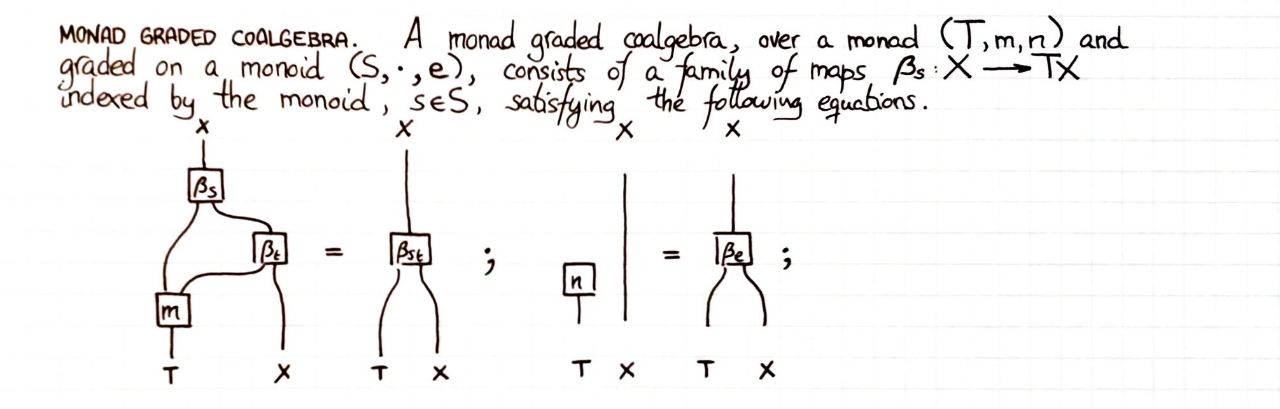 MONAD GRADED COALGEBRA. A monad graded coalgebra, over a monad (T,m,n) and
graded on a monoid (S,·,e), consists of a family of maps βs:X⟶TX
indexed by the monoid, s∈S, satisfying the following equations.
X X X X
βs
βt = βst ; = βe ;
n
m
T X T X T X T X